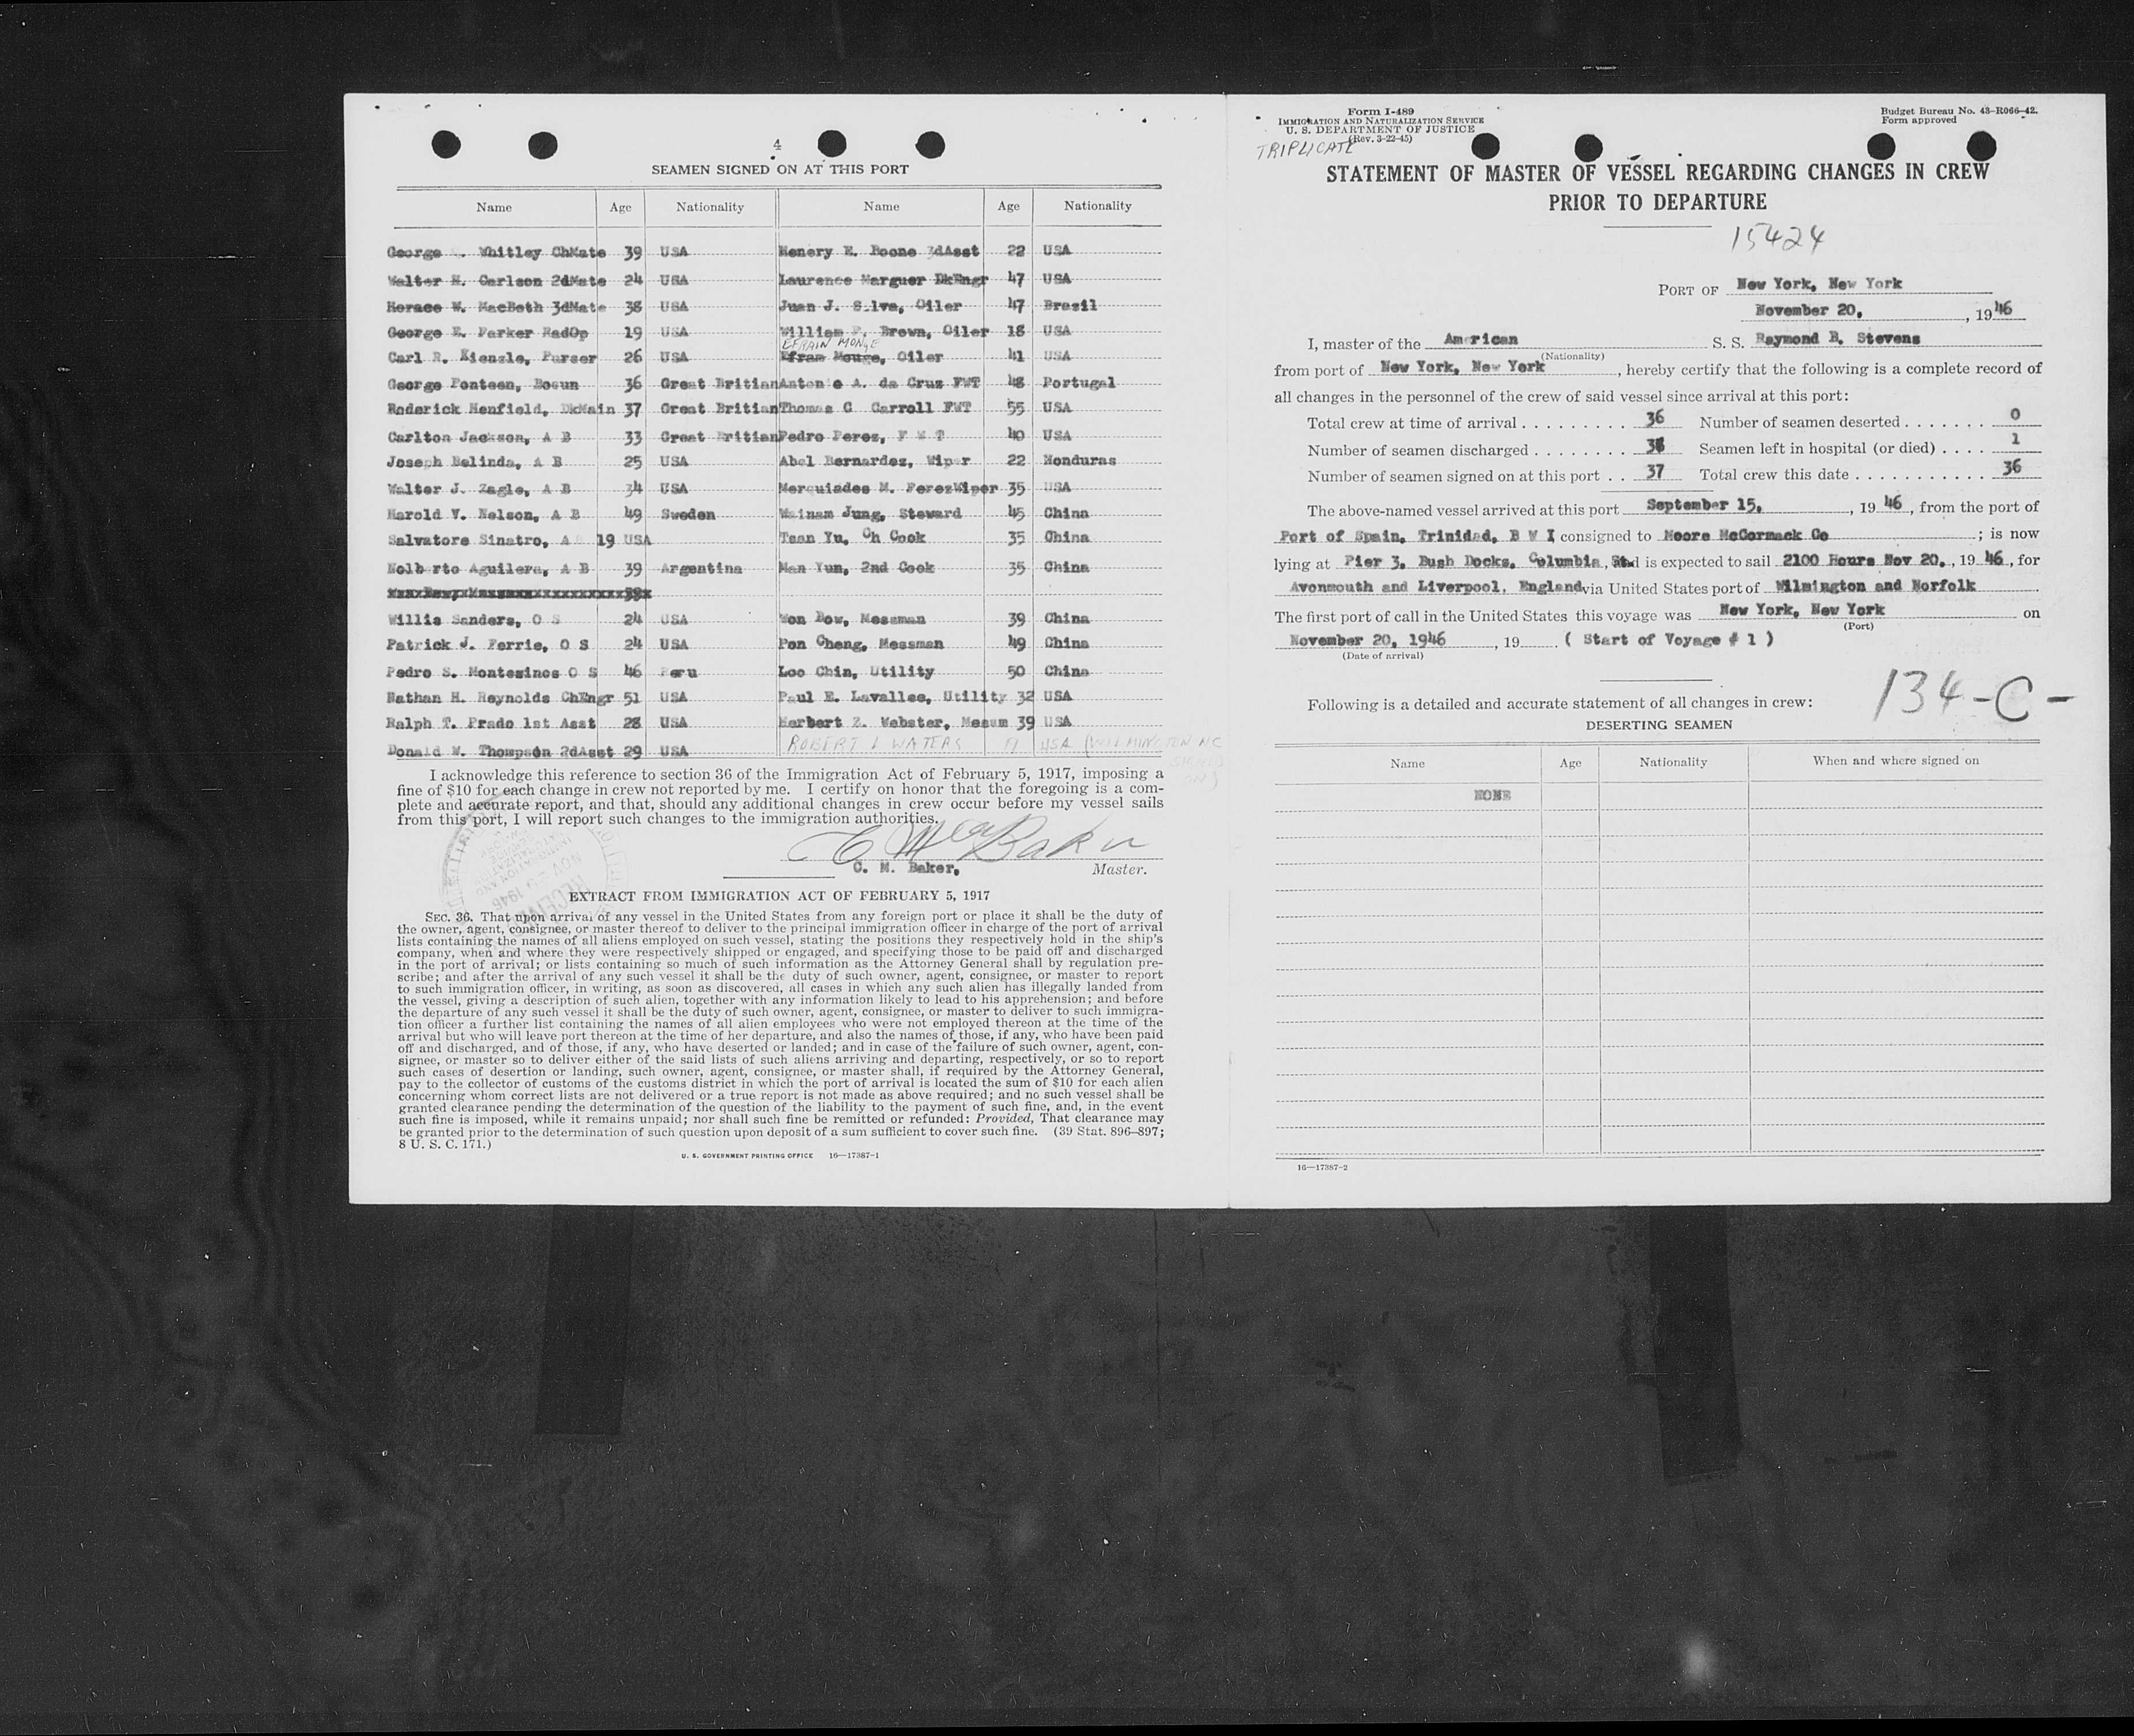 4
SEAMEN SIGNED ON AT THIS PORT
Name Age Nationality Name Age Nationality
George Whitley ChMate 39 USA Henery E. Boone 3dAsst 22 USA
Walter H. Carlson 2dMate 24 USA Laurence Marguer DkEngr 47 USA
Horace W. MacBeth 3dMate 38 USA Juan J. Silva, Oiler 47 Brazil
George E. Parker RadOp 19 USA William F. Brown, Oiler 18 USA
EFRAIN MONGE
Carl R. Kienzle, Purser 26 USA Efram Mouge, Oiler 41 USA
George Ponteen, Bosun 36 Great Britian Antonio A. da Cruz FWT 48 Portugal
Roderick Henfield, DkMain 37 Great Britian Thomas C Carroll FWT 55 USA
Carlton Jackson, A B 33 Great Britian Pedro Perez, F W T 40 USA
Joseph Belinda, A B 25 USA Abel Bernardez, Wiper 22 Honduras
Walter J. Zagle, A B 34 USA Merquiades M. Perez Wiper 35 USA
Harold V. Nelson, A B 49 Sweden Wainam Jung, Steward 45 China
Salvatore Sinatro, A B 19 USA Tsan Yu, Ch Cook 35 China
Nolberto Aguilera, A B 39 Argentina Man Yun, 2nd Cook 35 China
Willis Sanders, O S 24 USA Won Dow, Messman 39 China
Patrick J. Ferrie, O S 24 USA Pon Cheng, Messman 49 China
Pedro S. Montesinos O S 46 Peru Loo Chin, Utility 50 China
Nathan H. Reynolds ChEngr 51 USA Paul E. Lavallee, Utility 32 USA
Ralph T. Prado 1st Asst 28 USA Herbert Z. Webster, Messm 39 USA
Donald W. Thompson 2dAsst 29 USA ROBERT L WATERS USA (WILMINGTON NC
SIGNED
ON)
I acknowledge this reference to section 36 of the Immigration Act of February 5, 1917, imposing a
fine of $10 for each change in crew not reported by me. I certify on honor that the foregoing is a com-
plete and accurate report, and that, should any additional changes in crew occur before my vessel sails
from this port, I will report such changes to the immigration authorities.
C. M. Baker, Master.
EXTRACT FROM IMMIGRATION ACT OF FEBRUARY 5, 1917
SEC. 36. That upon arrival of any vessel in the United States from any foreign port or place it shall be the duty of
the owner, agent, consignee, or master thereof to deliver to the principal immigration officer in charge of the port of arrival
lists containing the names of all aliens employed on such vessel, stating the positions they respectively hold in the ship's
company, when and where they were respectively shipped or engaged, and specifying those to be paid off and discharged
in the port of arrival; or lists containing so much of such information as the Attorney General shall by regulation pre-
scribe; and after the arrival of any such vessel it shall be the duty of such owner, agent, consignee, or master to report
to such immigration officer, in writing, as soon as discovered, all cases in which any such alien has illegally landed from
the vessel, giving a description of such alien, together with any information likely to lead to his apprehension; and before
the departure of any such vessel it shall be the duty of such owner, agent, consignee, or master to deliver to such immigra-
tion officer a further list containing the names of all alien employees who were not employed thereon at the time of the
arrival but who will leave port thereon at the time of her departure, and also the names of those, if any, who have been paid
off and discharged, and of those, if any, who have deserted or landed; and in case of the failure of such owner, agent, con-
signee, or master so to deliver either of the said lists of such aliens arriving and departing, respectively, or so to report
such cases of desertion or landing, such owner, agent, consignee, or master shall, if required by the Attorney General,
pay to the collector of customs of the customs district in which the port of arrival is located the sum of $10 for each alien
concerning whom correct lists are not delivered or a true report is not made as above required; and no such vessel shall be
granted clearance pending the determination of the question of the liability to the payment of such fine, and, in the event
such fine is imposed, while it remains unpaid; nor shall such fine be remitted or refunded: Provided, That clearance may
be granted prior to the determination of such question upon deposit of a sum sufficient to cover such fine. (39 Stat. 896–897;
8 U. S. C. 171.)
U. S. GOVERNMENT PRINTING OFFICE 16—17387-1
Form I-489
IMMIGRATION AND NATURALIZATION SERVICE
U. S. DEPARTMENT OF JUSTICE
(Rev. 3-22-45)
TRIPLICATE
Budget Bureau No. 43-R066-42.
Form approved
STATEMENT OF MASTER OF VESSEL REGARDING CHANGES IN CREW
PRIOR TO DEPARTURE
15424
PORT OF New York, New York
November 20, , 1946
I, master of the American S. S. Raymond B. Stevens
(Nationality)
from port of New York, New York , hereby certify that the following is a complete record of
all changes in the personnel of the crew of said vessel since arrival at this port:
Total crew at time of arrival . . . . . . . . . 36 Number of seamen deserted . . . . . . . 0
Number of seamen discharged . . . . . . . . Seamen left in hospital (or died) . . . . 1
Number of seamen signed on at this port . . 37 Total crew this date . . . . . . . . . . . 36
The above-named vessel arrived at this port September 15, , 19 46 , from the port of
Port of Spain, Trinidad, B W I consigned to Moore McCormack Co ; is now
lying at Pier 3, Bush Docks, Columbia, St. and is expected to sail 2100 Hours Nov 20, , 19 46 , for
Avonmouth and Liverpool, England via United States port of Wilmington and Norfolk
The first port of call in the United States this voyage was New York, New York on
(Port)
November 20, 1946 , 19 . ( Start of Voyage # 1 )
(Date of arrival)
134-C-
Following is a detailed and accurate statement of all changes in crew:
DESERTING SEAMEN
Name Age Nationality When and where signed on
NONE
16—17387-2